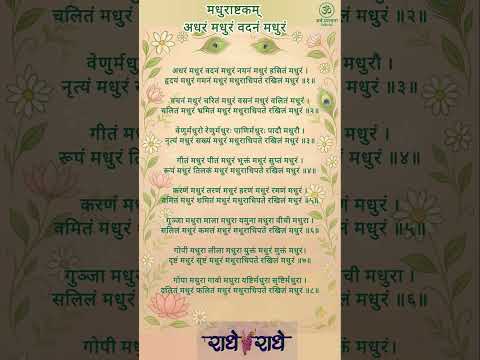 मधुराष्टकम्
अधरं मधुरं वदनं मधुरं
अधरं मधुरं वदनं मधुरं नयनं मधुरं हसितं मधुरं ।
हृदयं मधुरं गमनं मधुरं मधुराधिपते रखिलं मधुरं ॥१॥
वचनं मधुरं चरितं मधुरं वसनं मधुरं वलितं मधुरं ।
चलितं मधुरं भ्रमितं मधुरं मधुराधिपते रखिलं मधुरं ॥२॥
वेणुर्मधुरो रेणुर्मधुरः पाणिर्मधुरः पादौ मधुरौ ।
नृत्यं मधुरं सख्यं मधुरं मधुराधिपते रखिलं मधुरं ॥३॥
गीतं मधुरं पीतं मधुरं भुक्तं मधुरं सुप्तं मधुरं ।
रूपं मधुरं तिलकं मधुरं मधुराधिपते रखिलं मधुरं ॥४॥
करणं मधुरं तरणं मधुरं हरणं मधुरं रमणं मधुरं ।
वमितं मधुरं शमितं मधुरं मधुराधिपते रखिलं मधुरं ॥५॥
गुञ्जा मधुरा माला मधुरा यमुना मधुरा वीची मधुरा ।
सलिलं मधुरं कमलं मधुरं मधुराधिपते रखिलं मधुरं ॥६॥
गोपी मधुरा लीला मधुरा युक्तं मधुरं मुक्तं मधुरं।
दृष्टं मधुरं सृष्टं मधुरं मधुराधिपते रखिलं मधुरं ॥७॥
गोपा मधुरा गावो मधुरा यष्टिर्मधुरा सृष्टिर्मधुरा ।
दलितं मधुरं फलितं मधुरं मधुराधिपते रखिलं मधुरं ॥८॥
राधे राधे